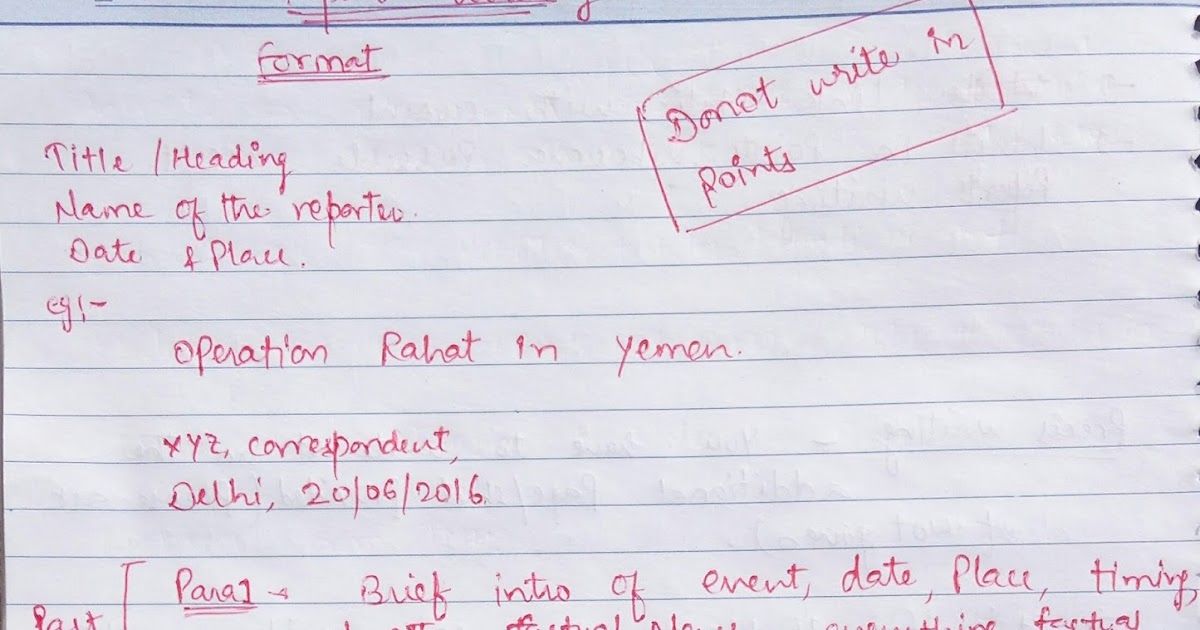 Format
Donot write in
Points
Title / Heading
Name of the reporter.
Date & Place.
eg:-
Operation Rahat in yemen.
XYZ, correspondent,
Delhi, 20/06/2016.
Para1 → Brief intro of event, date, Place, timing,
Past
everything factual